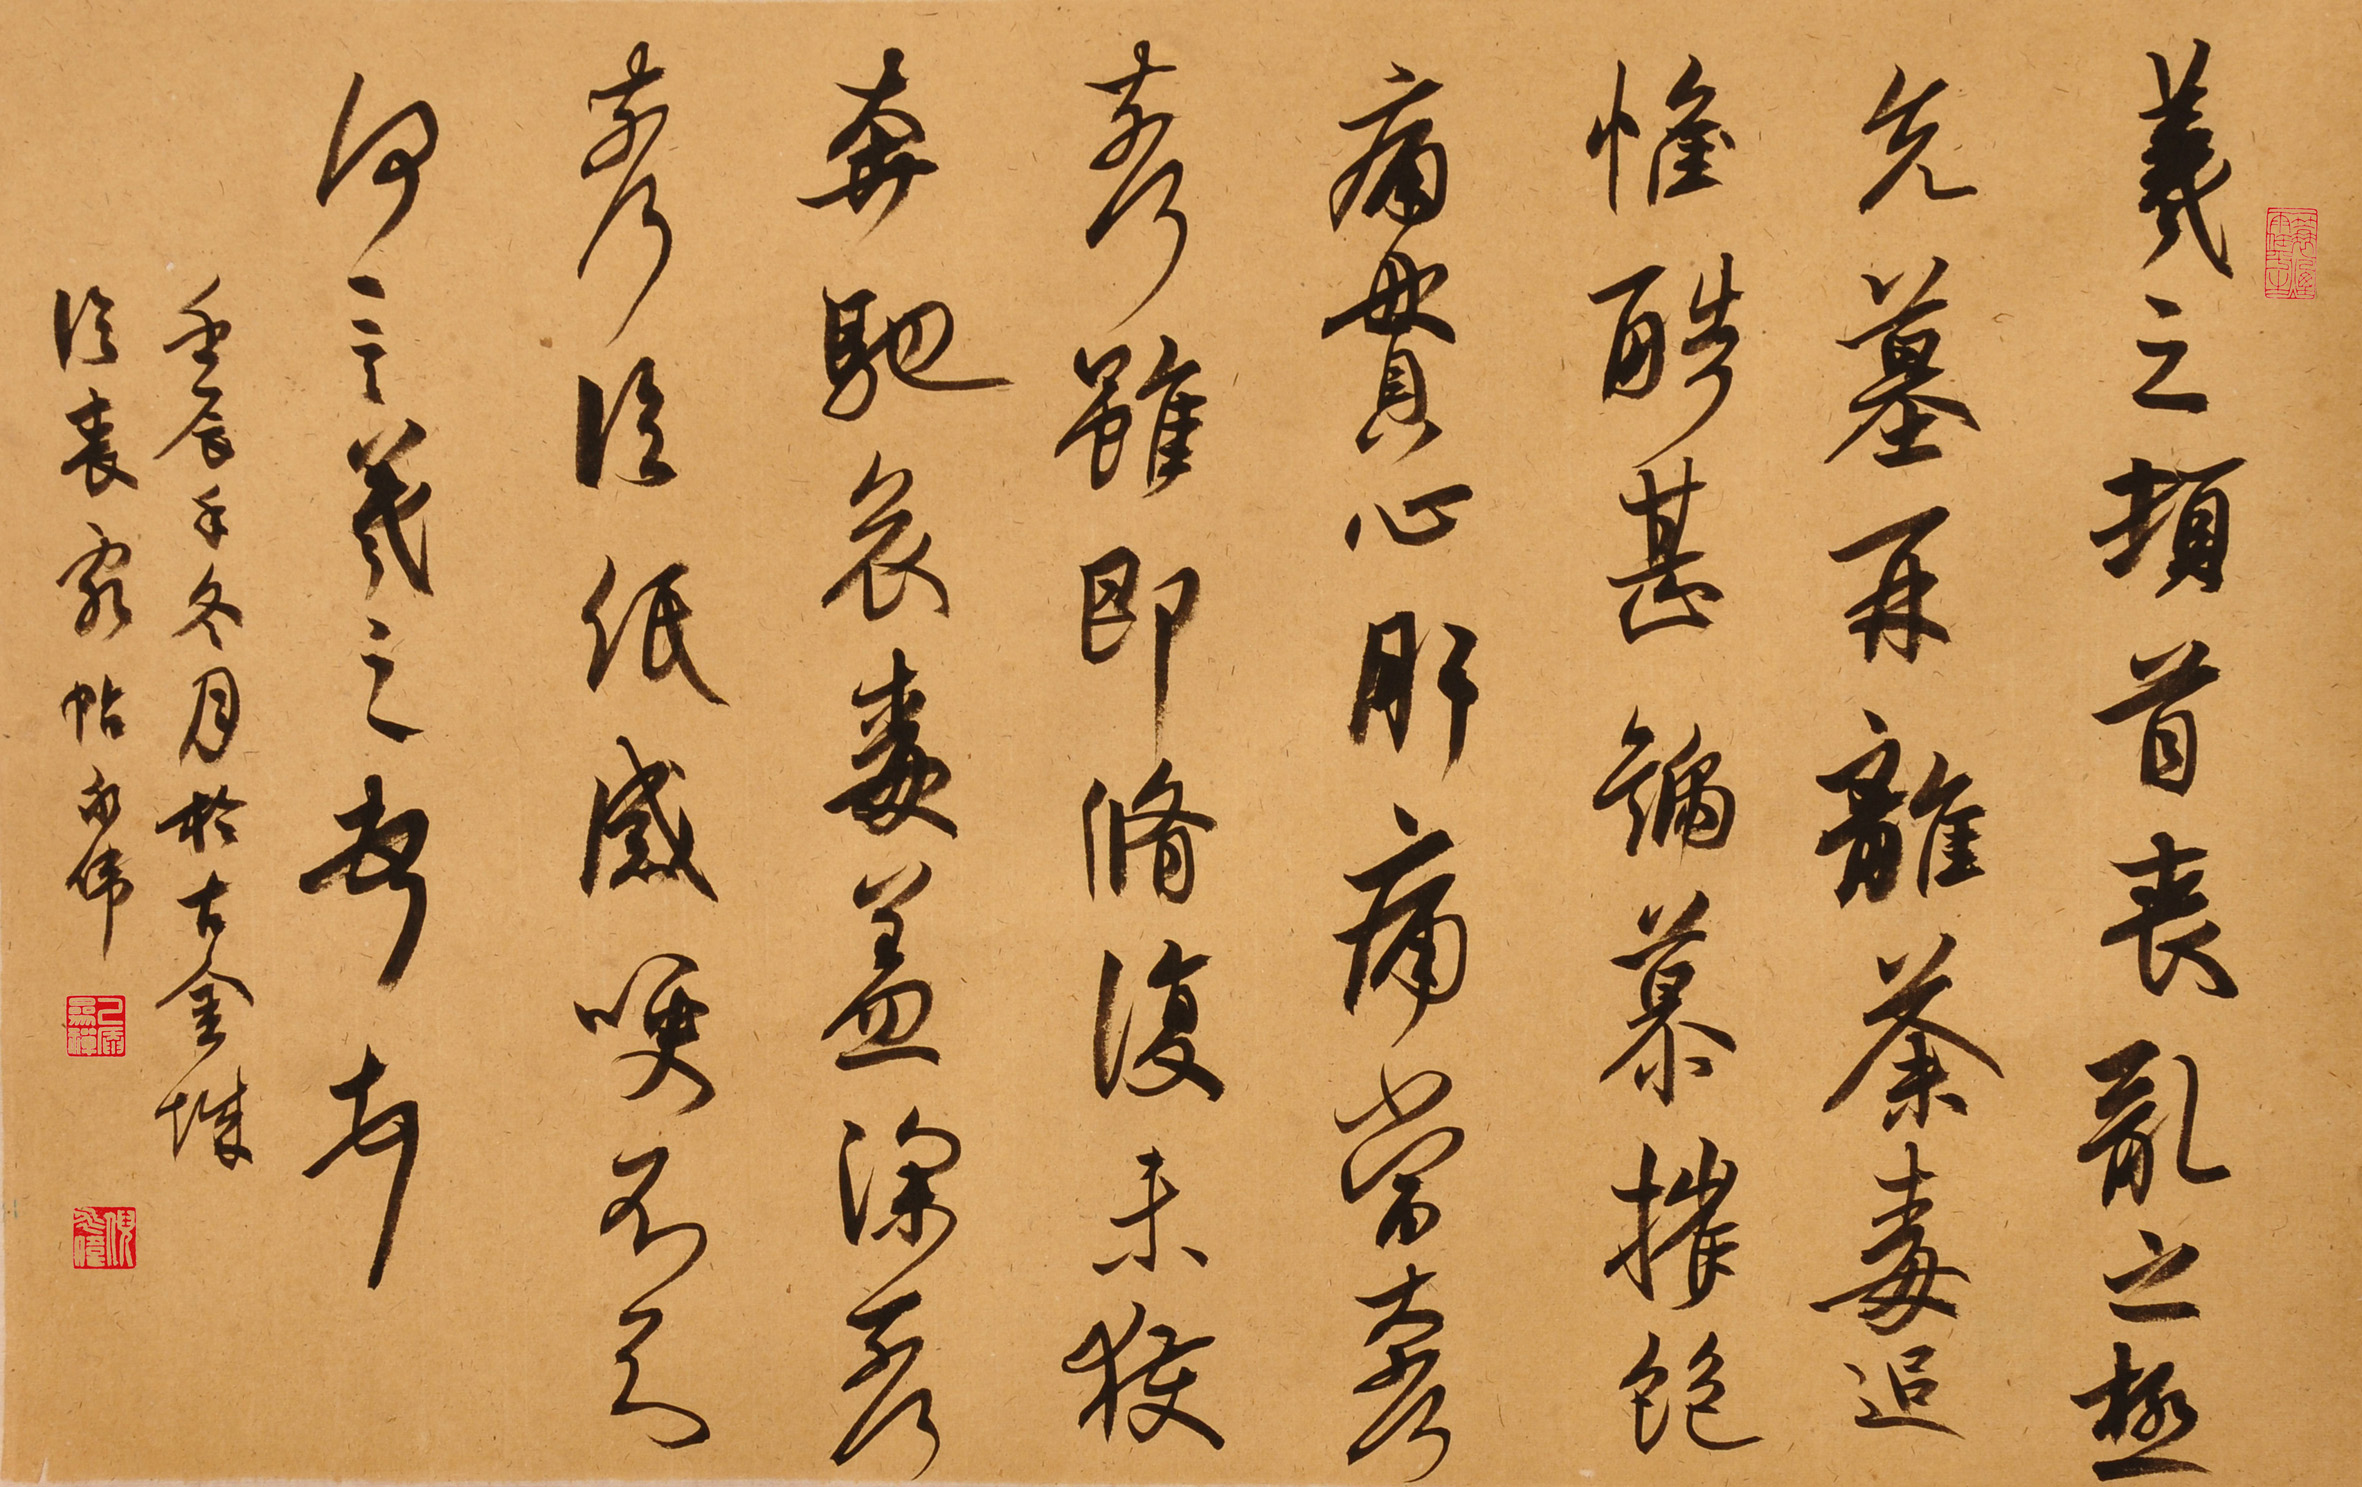 羲之頓首喪亂之極
先墓再離荼毒追
惟酷甚號慕摧絕
痛貫心肝痛當奈何
奈何雖即脩復未獲
奔馳哀毒益深奈何
奈何臨紙感哽不知
何言羲之頓首頓首
壬辰年冬月於古金城
臨喪亂帖伟